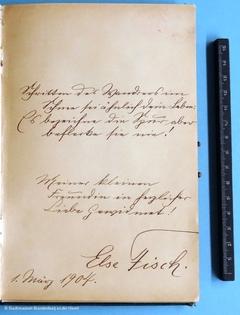 Schritten des Wanderers im
Schnee sei ähnlich dein Leben:
Es bezeichne die Spur, aber
beflecke sie nie!
Meiner kleinen
Freundin in herzlicher
Liebe gewidmet!
Else Fisch.
1. März 1904.
© Stadtmuseum Brandenburg an der Havel